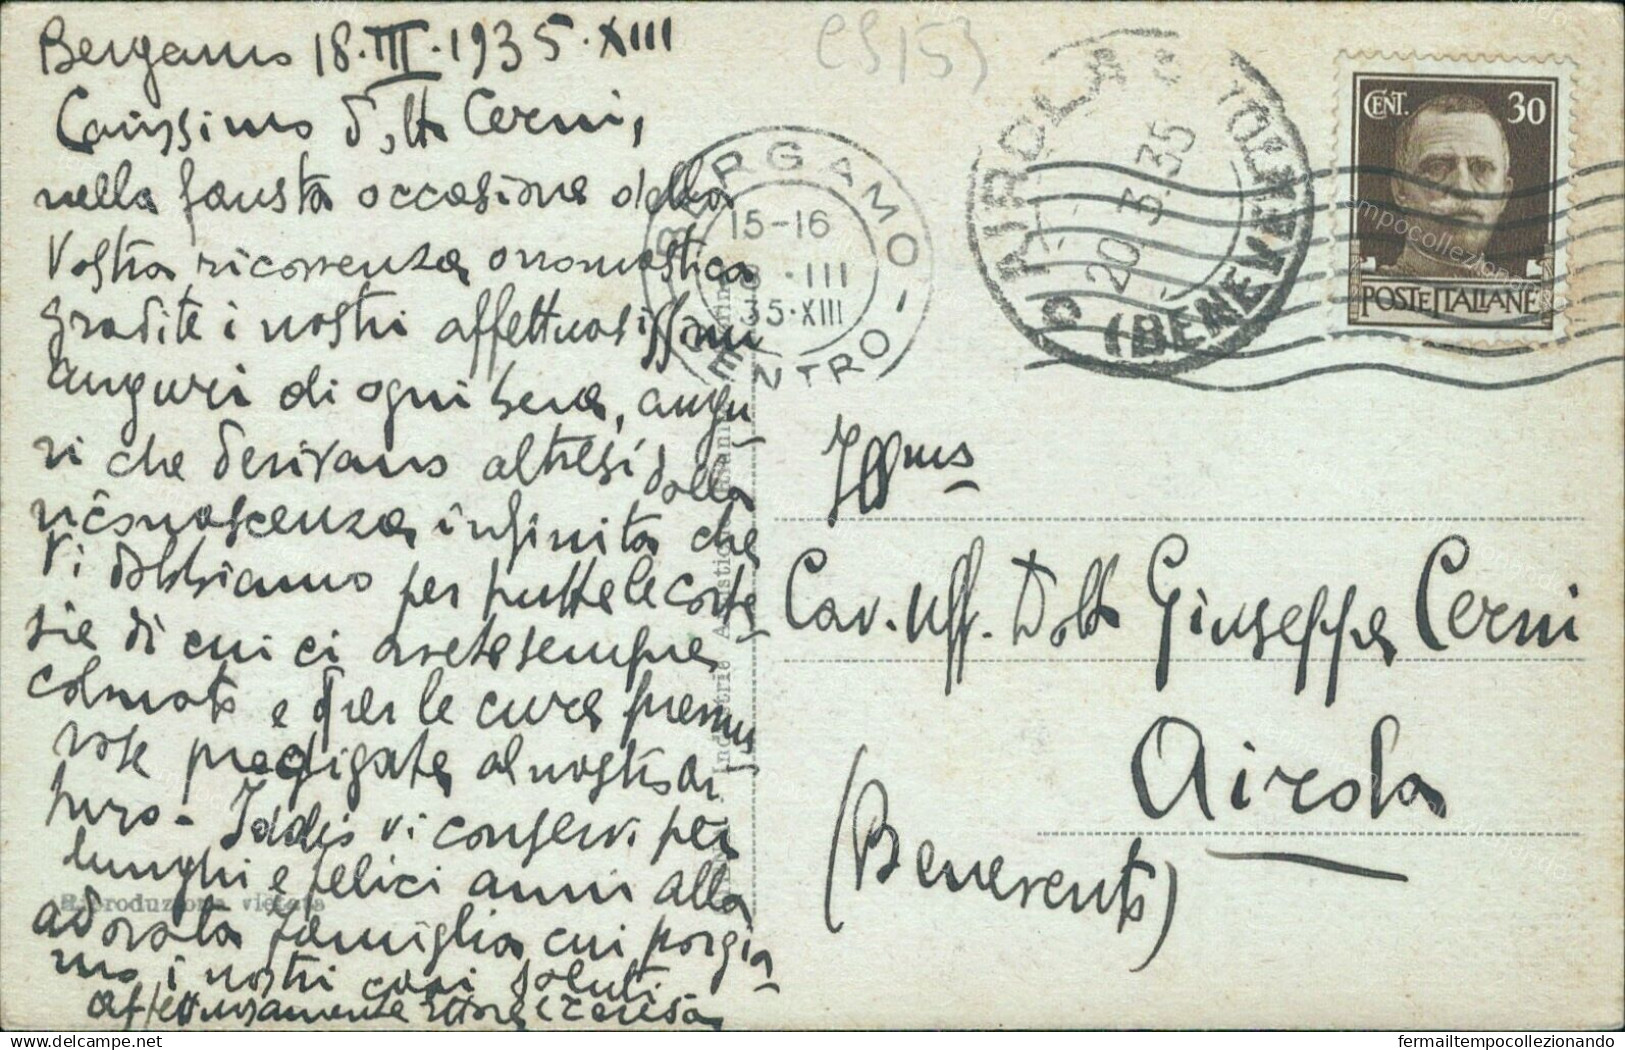 Bergamo 18·III·1935·XIII
Carissimo Dott. Cerni,
nella fausta occasione della
Vostra ricorrenza onomastica
gradite i nostri affettuosissimi
auguri di ogni bene, augu-
ri che derivano altresì dalla
riconoscenza infinita che
Vi dobbiamo per tutte le corte-
sie di cui ci avete sempre
colmato e per le cure premu-
rose prodigate al nostro Ar-
turo - Iddio vi conservi per
lunghi e felici anni alla
adorata famiglia cui porgia-
mo i nostri cari saluti
affettuosamente Ettore e Teresa
Riproduzione vietata
CS153
BERGAMO -
CENTRO
15-16
18 · III
35·XIII
AIROLA
(BENEVENTO)
20 3.35
CENT. 30
POSTE ITALIANE
Ill.mo
Cav. Uff. Dott Giuseppe Cerni
Airola
(Benevento)
www.delcampe.net
fermailtempocollezionando